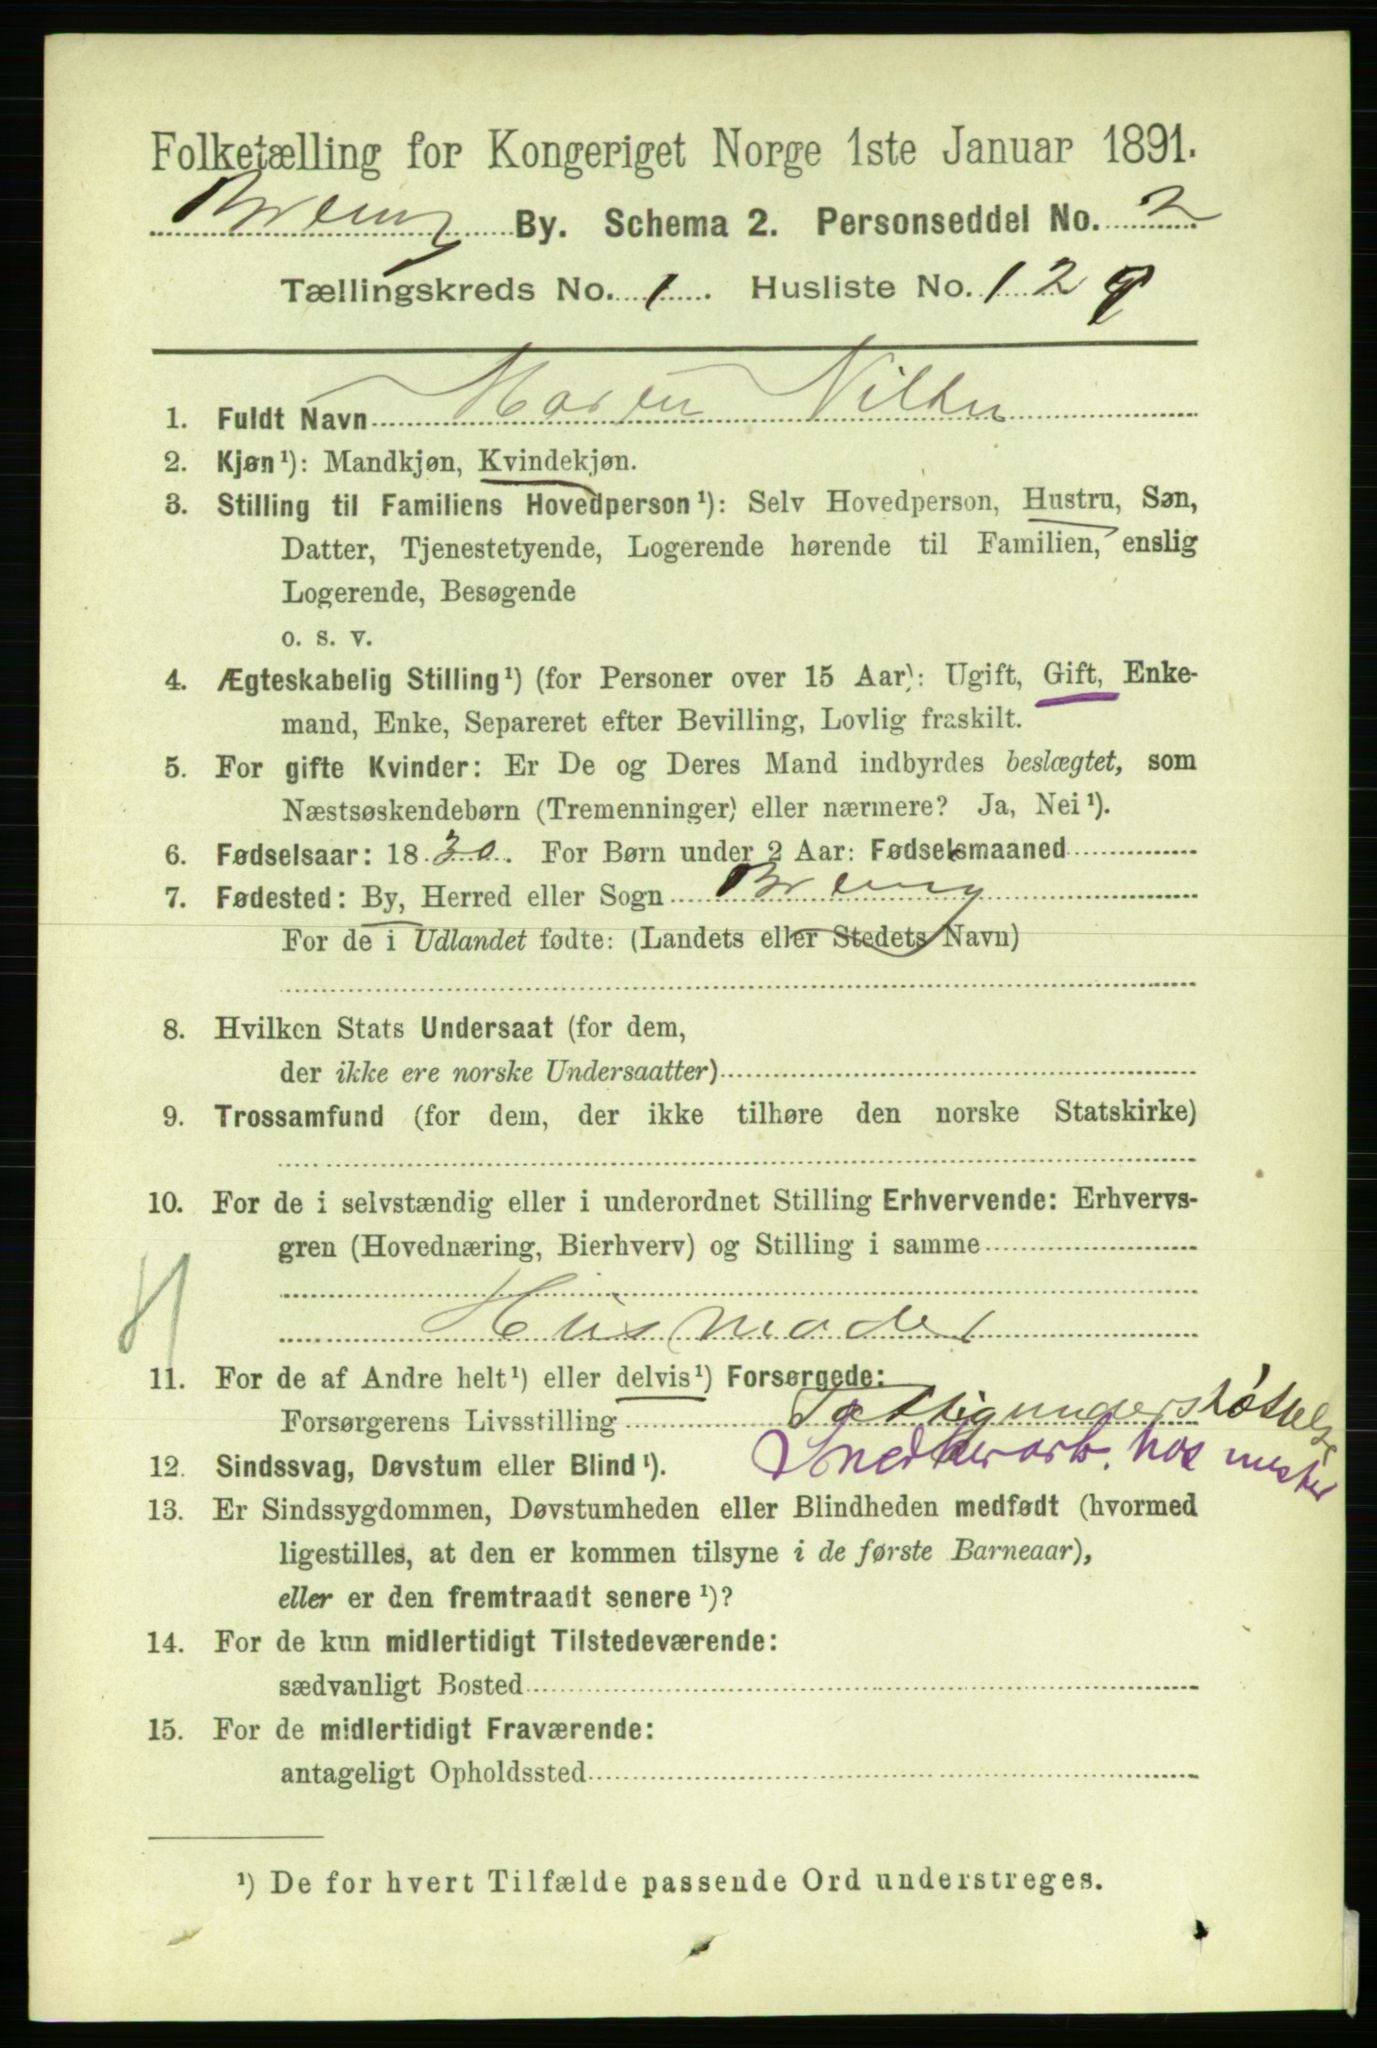 Folketælling for Kongeriget Norge 1ste Januar 1891.
Brevig By. Schema 2. Personseddel No. 2
Tællingskreds No. 1. Husliste No. 129
1. Fuldt Navn Maren
2. Kjøn¹): Mandkjøn, Kvindekjøn.
3. Stilling til Familiens Hovedperson¹): Selv Hovedperson, Hustru, Søn,
Datter, Tjenestetyende, Logerende hørende til Familien, enslig
Logerende, Besøgende
o. s. v.
4. Ægteskabelig Stilling¹) (for Personer over 15 Aar): Ugift, Gift, Enke-
mand, Enke, Separeret efter Bevilling, Lovlig fraskilt.
5. For gifte Kvinder: Er De og Deres Mand indbyrdes beslægtet, som
Næstsøskendebørn (Tremenninger) eller nærmere? Ja, Nei¹).
6. Fødselsaar: 1830. For Børn under 2 Aar: Fødselsmaaned
7. Fødested: By, Herred eller Sogn Brevig
For de i Udlandet fødte: (Landets eller Stedets Navn)
8. Hvilken Stats Undersaat (for dem,
der ikke ere norske Undersaatter)
9. Trossamfund (for dem, der ikke tilhøre den norske Statskirke)
10. For de i selvstændig eller i underordnet Stilling Erhvervende: Erhvervs-
gren (Hovednæring, Bierhverv) og Stilling i samme
Husmoder
11. For de af Andre helt¹) eller delvis¹) Forsørgede:
Forsørgerens Livsstilling Fattigunderstøttelse
12. Sindssvag, Døvstum eller Blind¹). Snedkerarb. hos mester
13. Er Sindssygdommen, Døvstumheden eller Blindheden medfødt (hvormed
ligestilles, at den er kommen tilsyne i de første Barneaar),
eller er den fremtraadt senere¹)?
14. For de kun midlertidigt Tilstedeværende:
sædvanligt Bosted
15. For de midlertidigt Fraværende:
antageligt Opholdssted
¹) De for hvert Tilfælde passende Ord understreges.